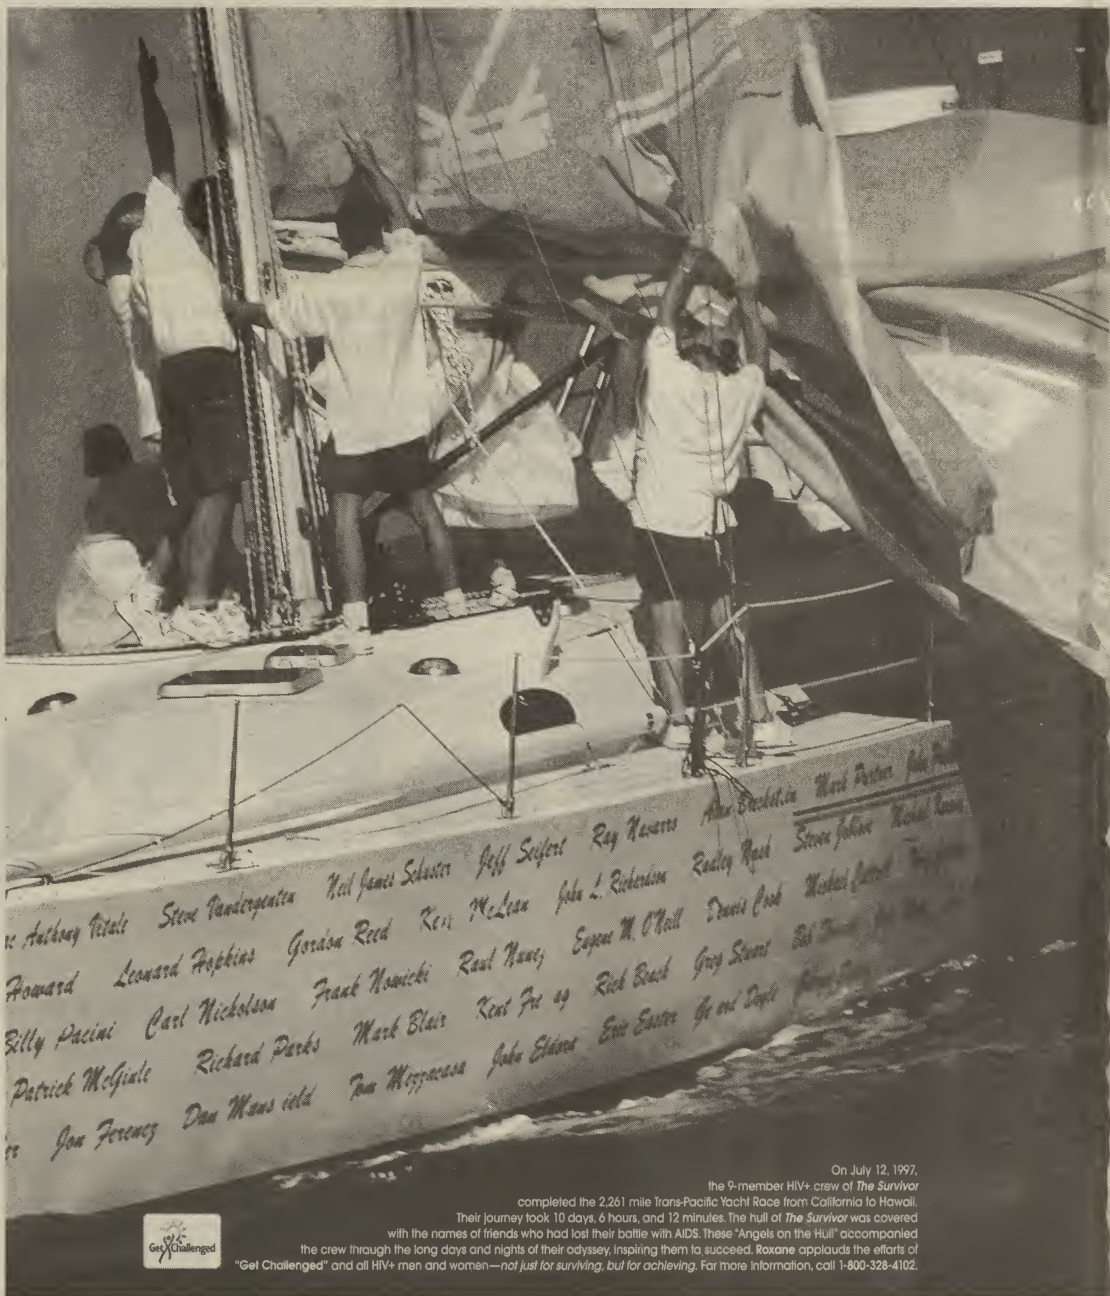 Anthony Vitale Steve Vandergenten Neil James Schuster Jeff Seifert Ray Navarro Mark Portner John
Howard Leonard Hopkins Gordon Reed Ken McLean John L. Richardson Nash Steven Michael
Billy Pacini Carl Nicholson Frank Nowicki Raul Nunez Eugene M. O'Neill Dennis Cook Michael
Patrick McGinle Richard Parks Mark Blair Kent Fre ag Rich Beach Greg Stuart Bob
er Jon Ferencz Dan Mans ield Tom Mezzacasa John Eldorn Eric Easter Ge ord Doyle
Get Challenged
On July 12, 1997,
the 9-member HIV+ crew of The Survivor
completed the 2,261 mile Trans-Pacific Yacht Race from California to Hawaii.
Their journey took 10 days, 6 hours, and 12 minutes. The hull of The Survivor was covered
with the names of friends who had lost their battle with AIDS. These "Angels on the Hull" accompanied
the crew through the long days and nights of their odyssey, inspiring them to succeed. Roxane applauds the efforts of
"Get Challenged" and all HIV+ men and women—not just for surviving, but for achieving. For more information, call 1-800-328-4102.